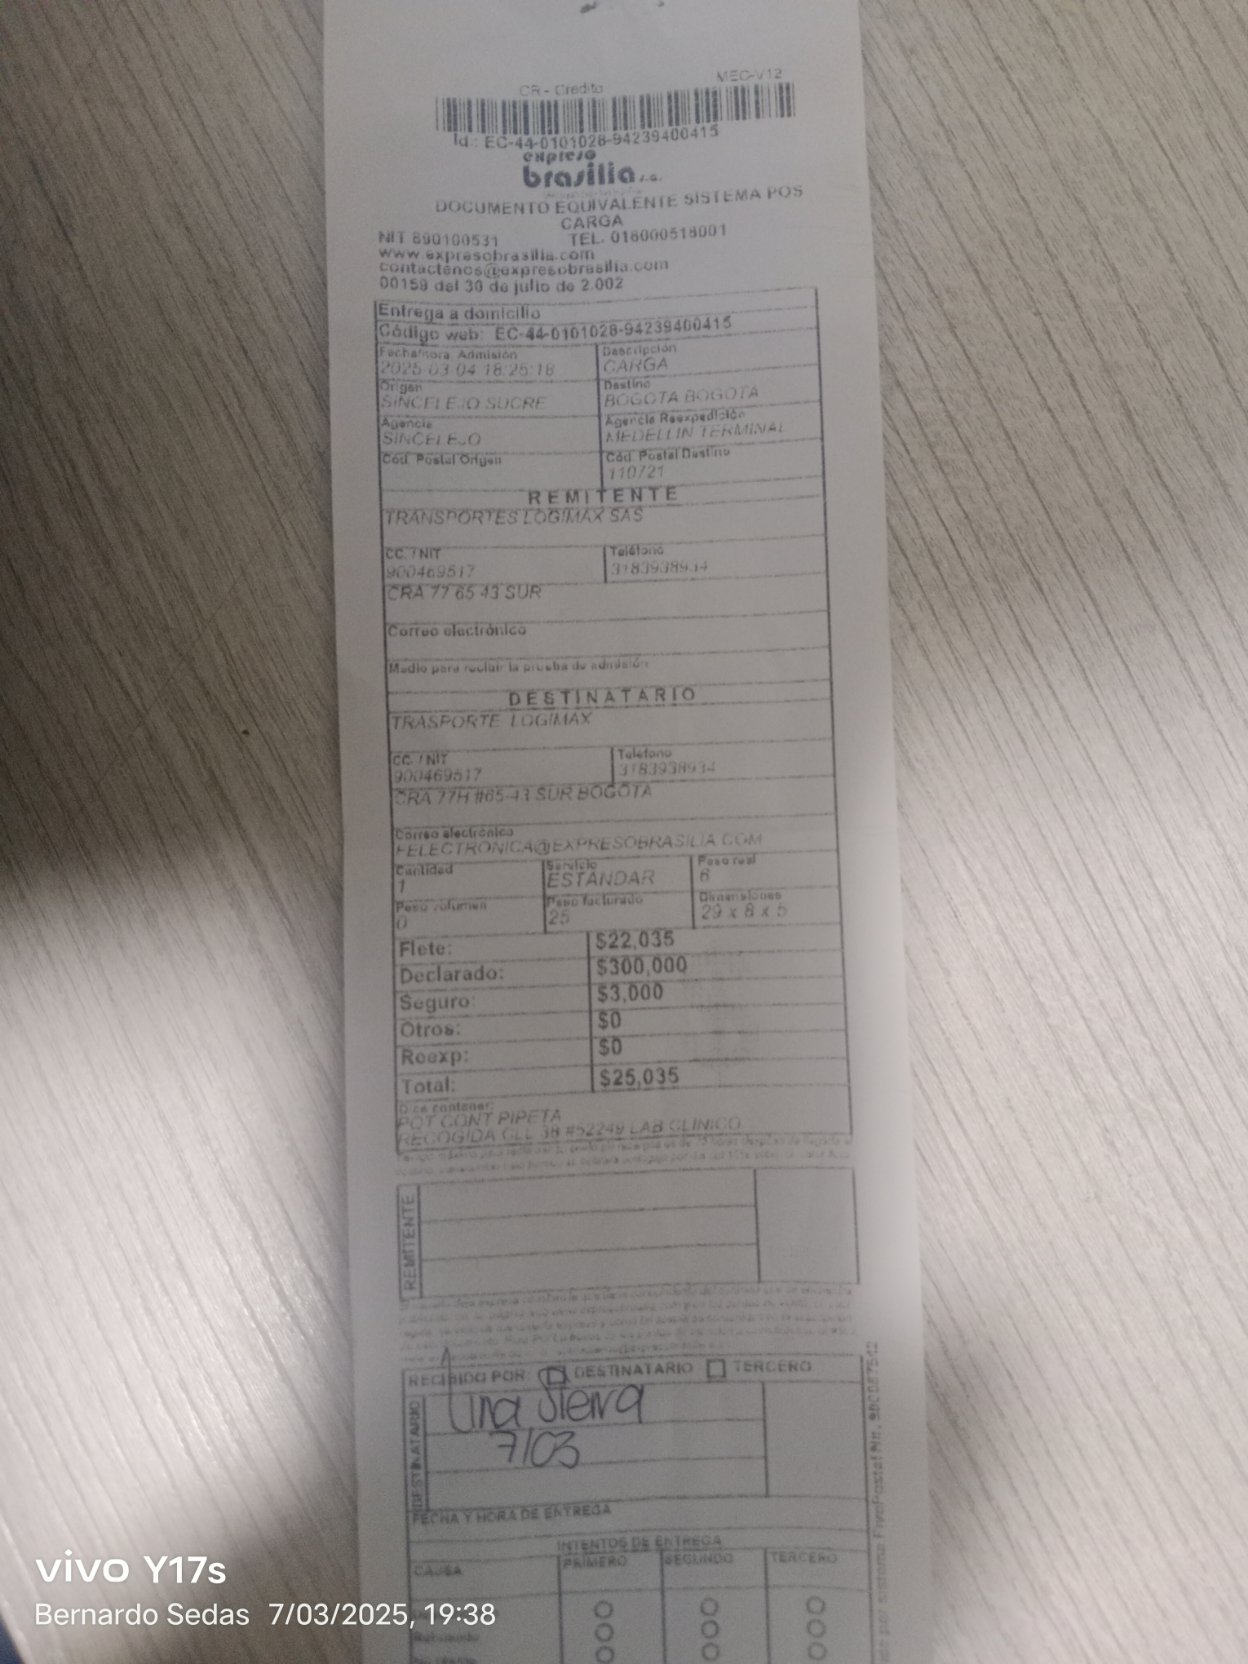 MEC-V12
CR - Credito
Id.: EC-44-0101028-94239400415
expreso
brasilia s.a.
DOCUMENTO EQUIVALENTE SISTEMA POS
CARGA
NIT 890100531 TEL. 018000518001
www.expresobrasilia.com
contactenos@expresobrasilia.com
00159 del 30 de julio de 2.002
Entrega a domicilio
Código web: EC-44-0101028-94239400415
Fecha/hora Admisión Descripción
2025-03-04 18:25:18 CARGA
Origen Destino
SINCELEJO SUCRE BOGOTA BOGOTA
Agencia Agencia Reexpedición
SINCELEJO MEDELLIN TERMINAL
Cód. Postal Origen Cód. Postal Destino
110721
REMITENTE
TRANSPORTES LOGIMAX SAS
CC. / NIT Teléfono
900469517 3183938934
CRA 77 65 43 SUR
Correo electrónico
Medio para recibir la prueba de admisión
DESTINATARIO
TRASPORTE LOGIMAX
CC. / NIT Teléfono
900469517 3183938934
CRA 77H #65-43 SUR BOGOTA
Correo electrónico
FELECTRONICA@EXPRESOBRASILIA.COM
Cantidad Servicio Peso real
1 ESTANDAR 6
Peso volumen Peso facturado Dimensiones
0 25 29 x 8 x 5
Flete: $22,035
Declarado: $300,000
Seguro: $3,000
Otros: $0
Reexp: $0
Total: $25,035
Dice contener:
POT CONT PIPETA
RECOGIDA CLL 38 #52249 LAB CLINICO
REMITENTE
RECIBIDO POR: DESTINATARIO TERCERO
DESTINATARIO
Lina Sierra
7/03
FECHA Y HORA DE ENTREGA
INTENTOS DE ENTREGA
CAUSA PRIMERO SEGUNDO TERCERO
vivo Y17s
Bernardo Sedas 7/03/2025, 19:38